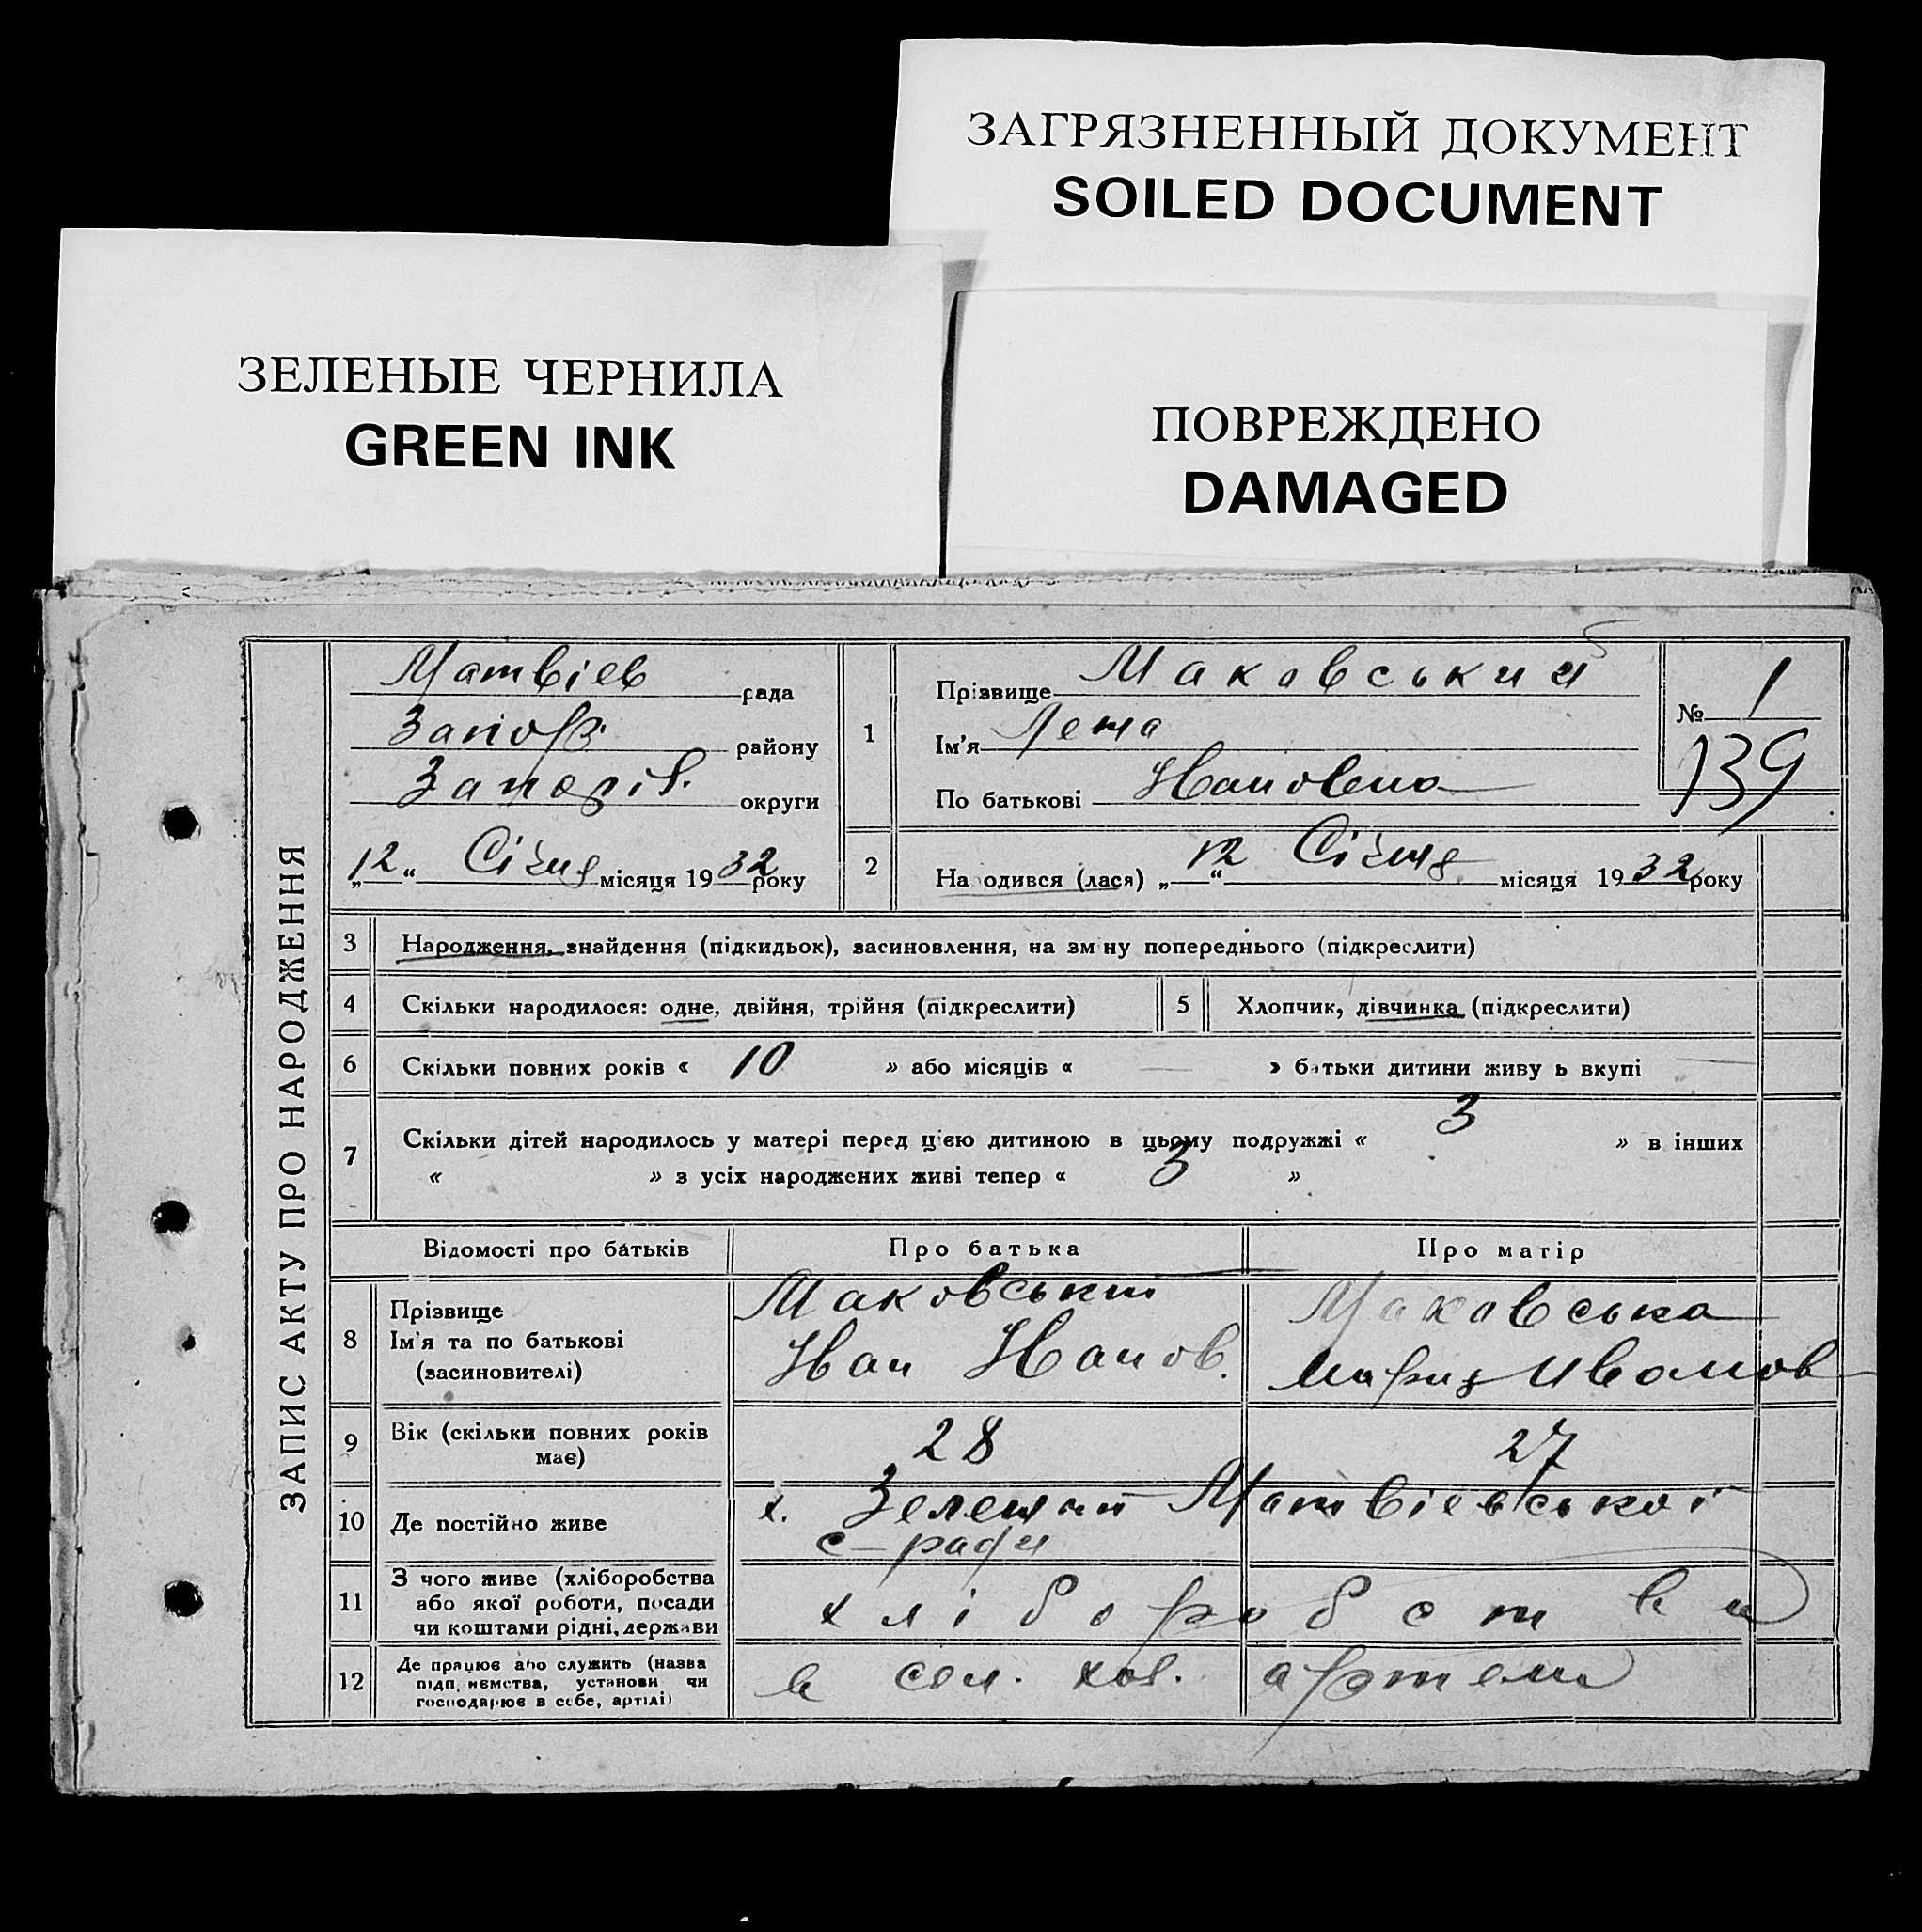 ЗАГРЯЗНЕННЫЙ ДОКУМЕНТ
SOILED DOCUMENT
ЗЕЛЕНЫЕ ЧЕРНИЛА
GREEN INK
ПОВРЕЖДЕНО
DAMAGED
ЗАПИС АКТУ ПРО НАРОДЖЕННЯ
Матвіев рада
району
Запоріз. округи
„12“ Січня місяця 1932 року
1
Прізвище Маковський
Ім'я
По батькові Ивановна
№ 1
139
2
На одився (лася) „12“ Січня місяця 1932 року
3 Народження, знайдення (підкидьок), засиновлення, на зм ну попереднього (підкреслити)
4 Скільки народилося: одне, двійня, трійня (підкреслити)
5 Хлопчик, дівчинка (підкреслити)
6 Скільки повних років « 10 » або місяців « — » батьки дитини живу ь вкупі
7 Скільки дітей народилось у матері перед цією дитиною в цьому подружжі « 3 » в інших
« » з усіх народжених живі тепер « 3 »
Відомості про батьків Про батька Про матір
8 Прізвище
Ім'я та по батькові
(засиновителі)
Маковський
Иван Иванов.
Маковська
Мария Иванов
9 Вік (скільки повних років
має)
28 27
10 Де постійно живе
х. Матвіевської
с-ради
11 З чого живе (хліборобства
або якої роботи, посади
чи коштами рідні, держави
хліборобства
12 Де працює або служить (назва
підп иємства, установи чи
господарює в себе, артілі)
в сел. хоз. артели